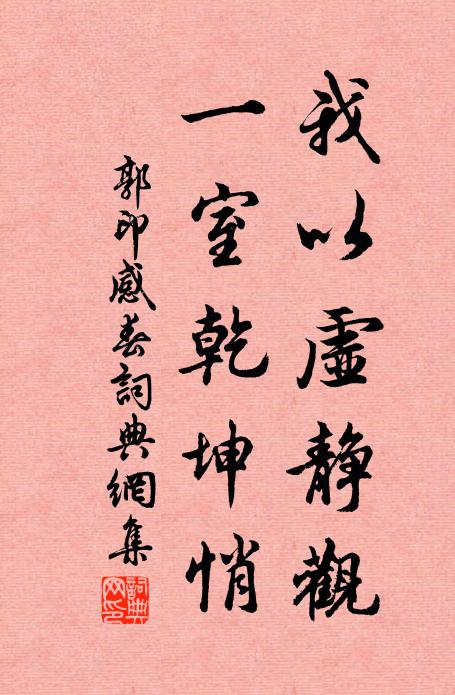 我以虛静觀
一室乾坤悄
郭印感春詞典網集
詞典网印